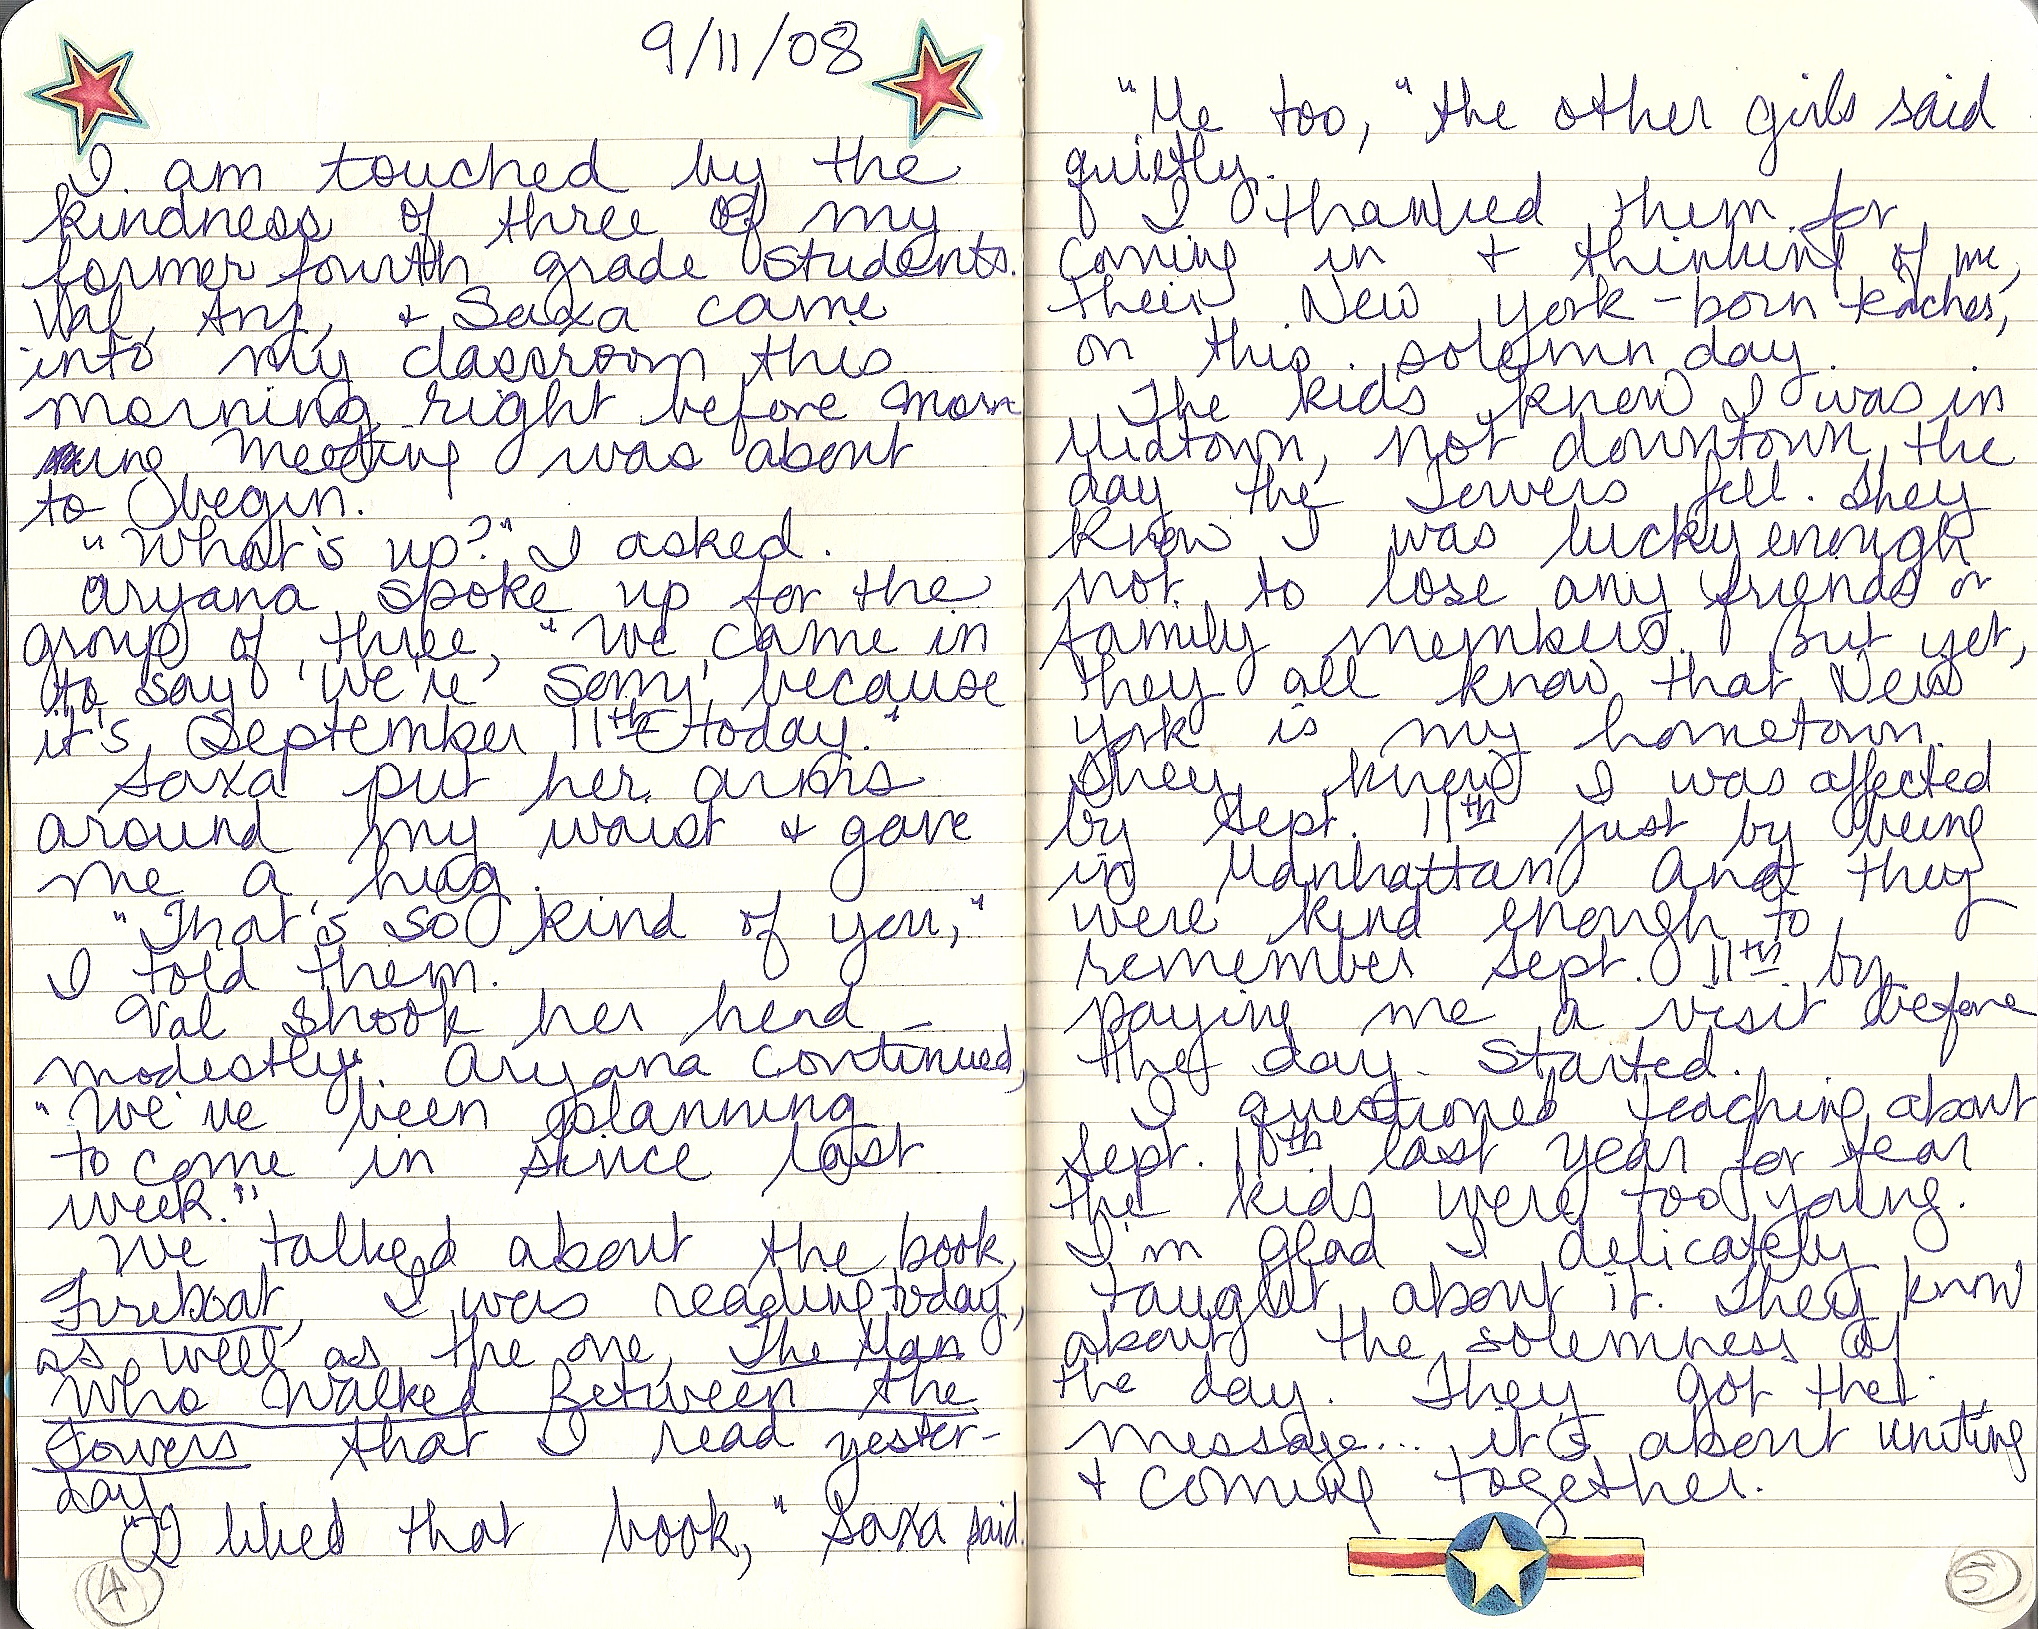 9/11/08
I am touched by the
kindness of three of my
former fourth grade students.
Val, Ary, & Saxa came
into my classroom this
morning right before morn
ing meeting was about
to begin.
"What's up?" I asked.
Aryana spoke up for the
group of three, "We came in
to say 'we're sorry' because
it's September 11th today."
Saxa put her arms
around my waist & gave
me a hug.
"That's so kind of you,"
I told them.
Val shook her head
modestly. Aryana continued,
"We've been planning
to come in since last
week."
We talked about the book,
Fireboat, I was reading today,
as well as the one, The Man
Who Walked Between the
Towers that I read yester-
day.
"I liked that book," Saxa said.
4
"Me too," the other girls said
quietly.
I thanked them for
coming in & thinking of me,
their New York-born teacher,
on this solemn day.
The kids knew I was in
Midtown, not downtown, the
day the Towers fell. They
know I was lucky enough
not to lose any friends or
family members. But yet,
they all know that New
York is my hometown.
They knew I was affected
by Sept. 11th just by being
in Manhattan and they
were kind enough to
remember Sept. 11th by
paying me a visit before
the day started.
I questioned teaching about
Sept. 11th last year for fear
the kids were too young.
I'm glad I delicately
taught about it. They know
about the solemness of
the day. They got the
message... it's about uniting
& coming together.
5